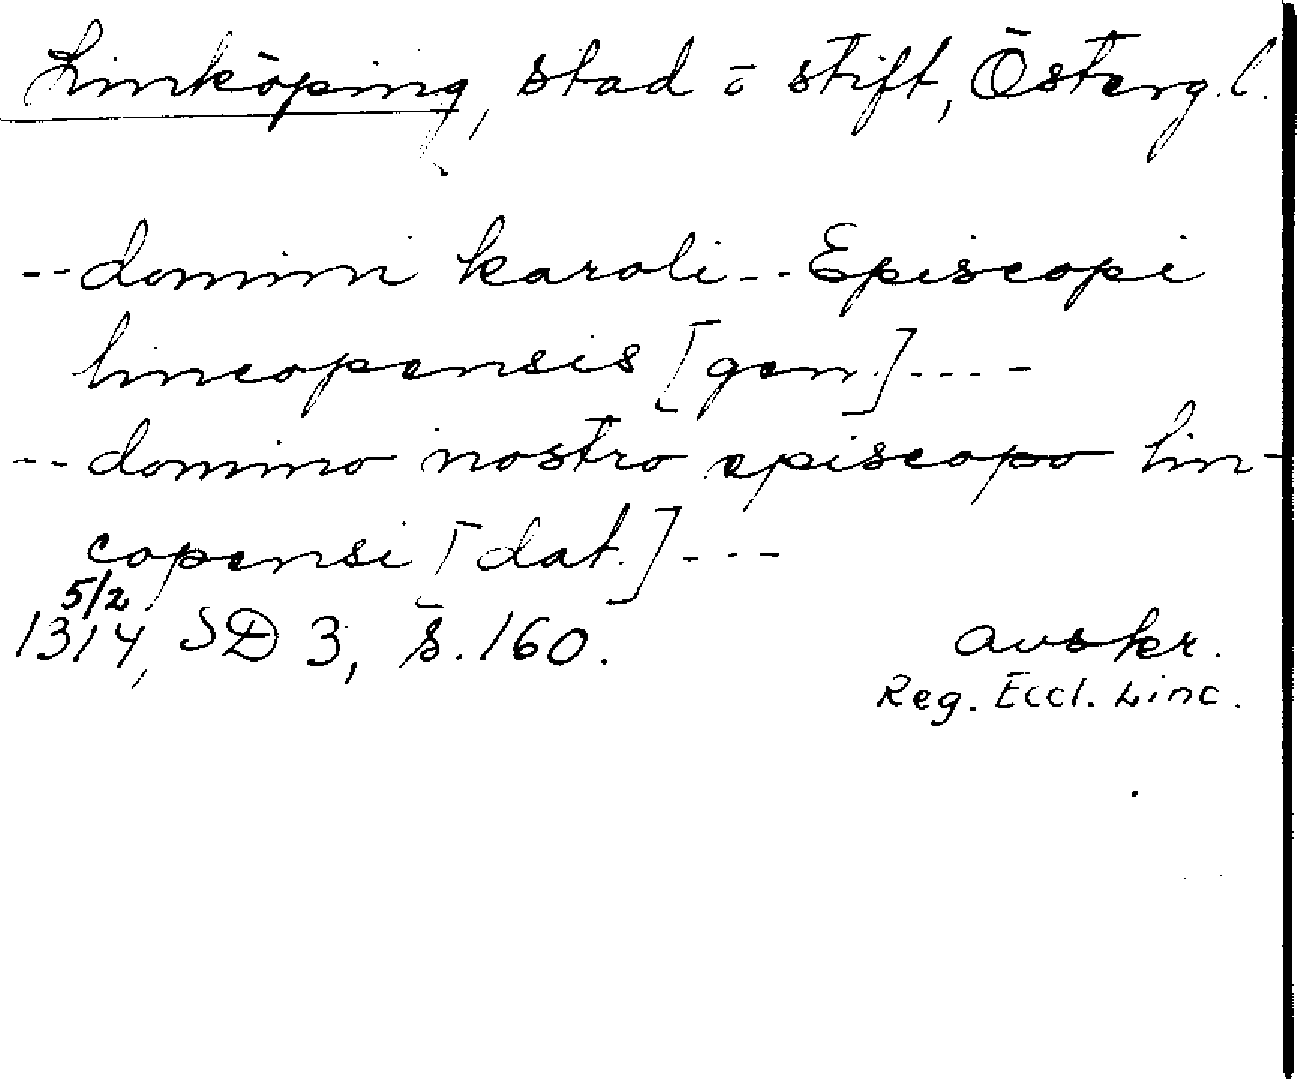 Linköping, stad ō stift, Österg.l.
-- domini karoli -- Episcopi
lincopensis [gen.] ----
-- domino nostro episcopo lin-
copensi [dat.] ---
5/2
1314, SD 3, s. 160. avskr.
Reg. Eccl. Linc.